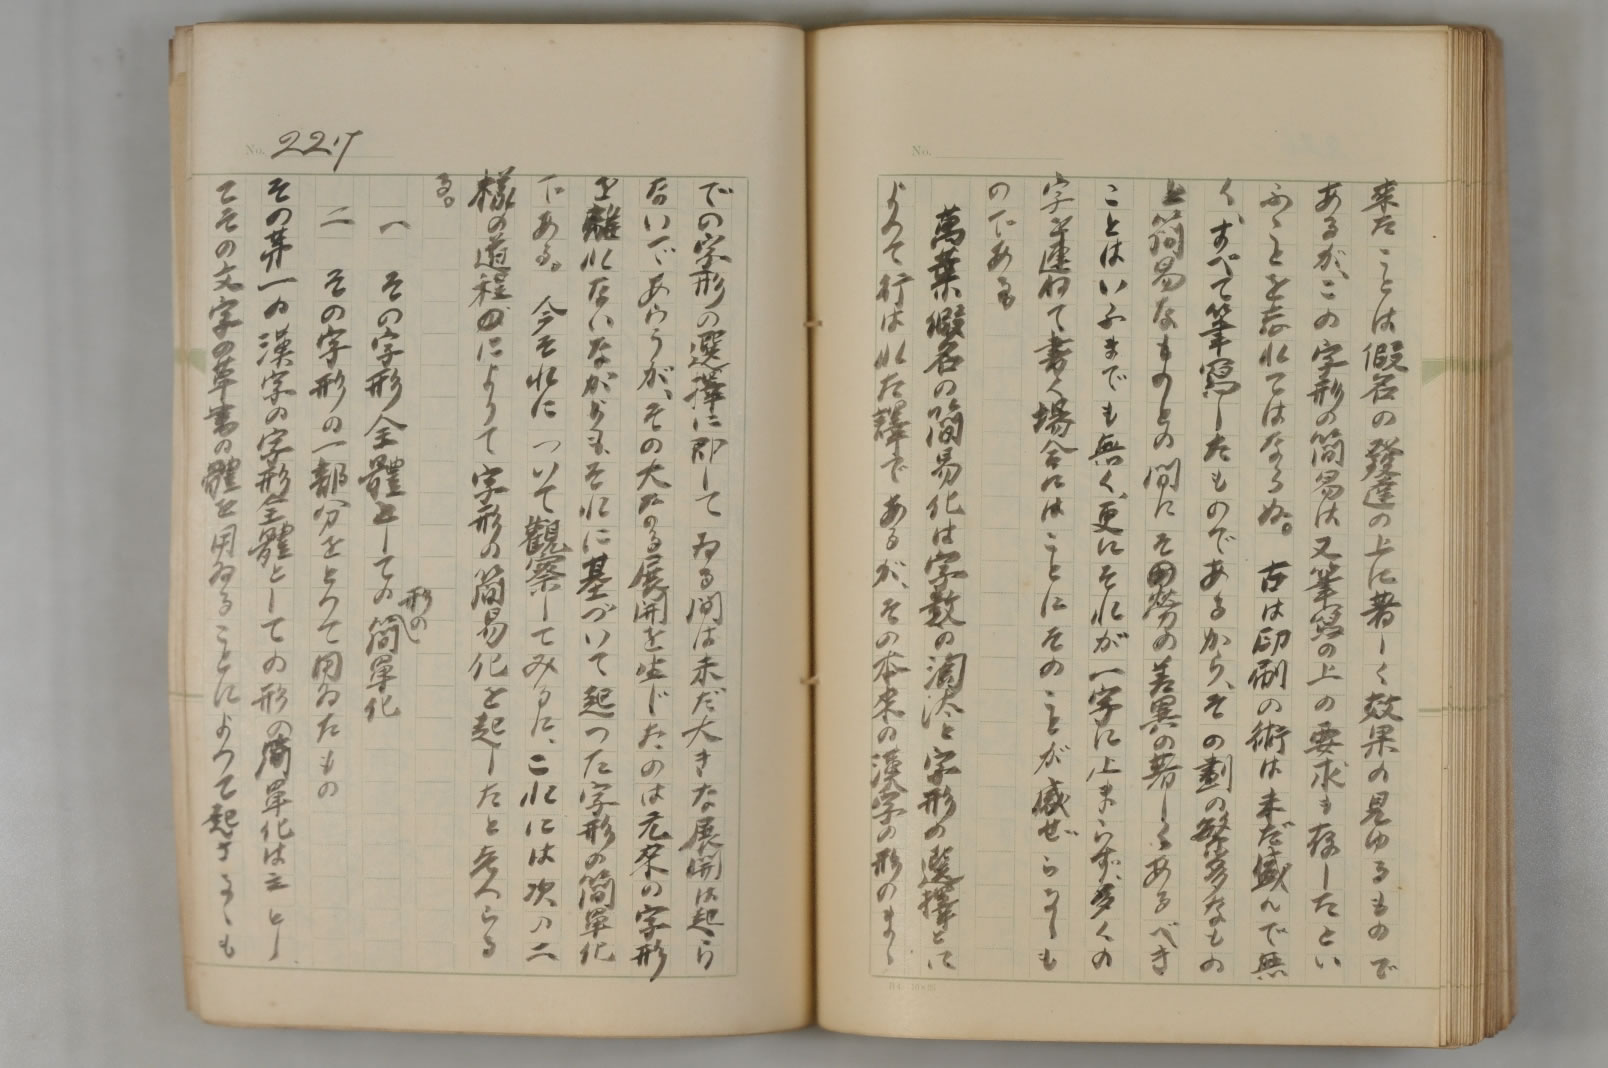 来たことは假名の發達の上に著しく效果の見ゆるもので
あるが、この字形の簡易は又筆寫の上の要求も存したとい
ふことを忘れてはならぬ。古は印刷の術は未だ盛んで無
く、すべて筆寫したものであるから、その劃の繁多なもの
と簡易なものとの間にその勞の差異の著しくあるべき
ことはいふまでも無く、更にそれが一字に止まらず、多くの
字を連ねて書く場合にはことにそのことが感ぜらるゝも
のである
萬葉假名の簡易化は字數の淘汰と字形の選擇とに
よつて行はれた譯であるが、その本來の漢字の形のまゝ
No.
No. 227
での字形の選擇に即してゐる間は未だ大きな展開は起ら
ないであらうが、その大なる展開を生じたのは元來の字形
を離れないながらも、それに基づいて起つた字形の簡單化
である。今それについて觀察してみるに、これには次の二
樣の道程によりて字形の簡易化を起したと考へらる
る。
一 その字形全體としての形の簡單化
二 その字形の一部分をとつて用ゐたもの
その第一の漢字の字形全體としての形の簡單化は主とし
てその文字の草書の體を用ゐることによつて起さるゝも